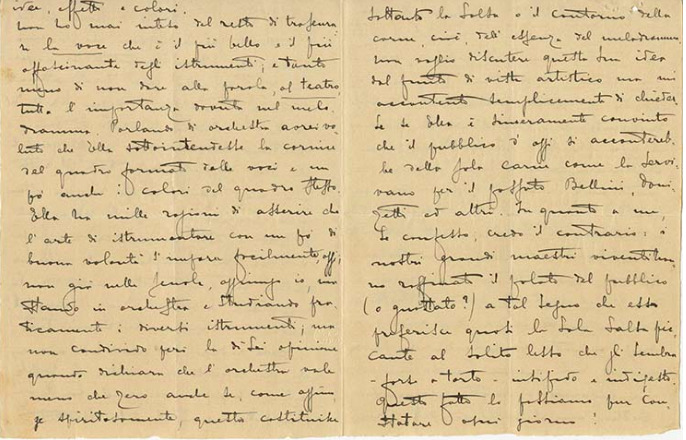 idee, effetti e colori.
Non ho mai inteso del resto di trascura-
re la voce che è il più bello e il più
affascinante degli istrumenti; e tanto
meno di non dare alla parola, al teatro
tutta l'importanza dovuta nel melo-
dramma. Parlando di orchestra avrei vo-
luto che Ella sottointendesse la cornice
del quadro formato dalle voci e un
po' anche i colori del quadro stesso.
Ella ha mille ragioni di asserire che
l'arte di istrumentare con un po' di
buona volontà s'impara facilmente, oggi,
non già nelle scuole, aggiungo io, ma
stando in orchestra e studiando pra-
ticamente i diversi istrumenti; ma
non condivido però la di Lei opinione
quando dichiara che l'orchestra vale
meno che zero anche se, come aggiun-
ge spiritosamente, questa costituisce
soltanto la salsa o il contorno della
carne, cioè, dell'essenza del melodramma.
Non voglio discutere questa Sua idea
dal punto di vista artistico ma mi
accontento semplicemente di chieder-
Le se Ella è sinceramente convinto
che il pubblico d'oggi si accontereb-
be della sola carne come la servi-
vano per il passato Bellini, Doni-
zetti ed altri. In quanto a me,
Lo confesso, credo il contrario: i
nostri grandi maestri viventi han-
no raffinato il palato del pubblico
(o guastato?) a tal segno che esso
preferisce quasi la sola salsa pic-
cante al solito lesso che gli sembra
- forse a torto - insipido e indigesto.
Questo fatto lo possiamo pur con-
statare ogni giorno!